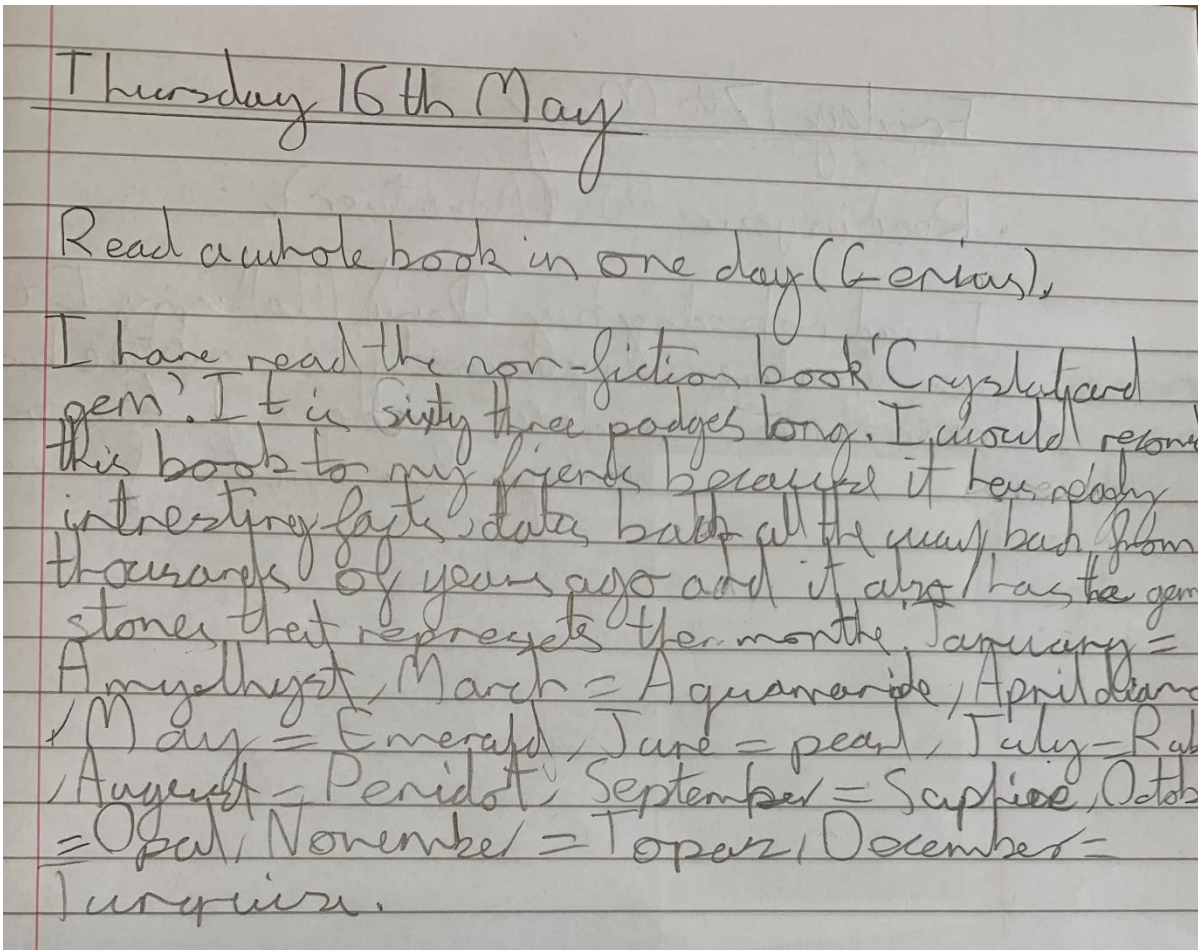 Thursday 16th May
Read a whole book in one day (Genius).
I have read the non-fiction book 'Crystal and
gem'. It is sixty three padges long. I would recom
this book to my friends because it has really
intresting facts, dates back all the way back from
thousands of years ago and it also has the gem
stones that represets the months, January =
Amyethyst, March = Aquamaride, April diamo
, May = Emerald, June = pearl, July = Rub
, August = Peridot, September = Sapfire, Octob
= Opal, November = Topaz, December =
Turquise.